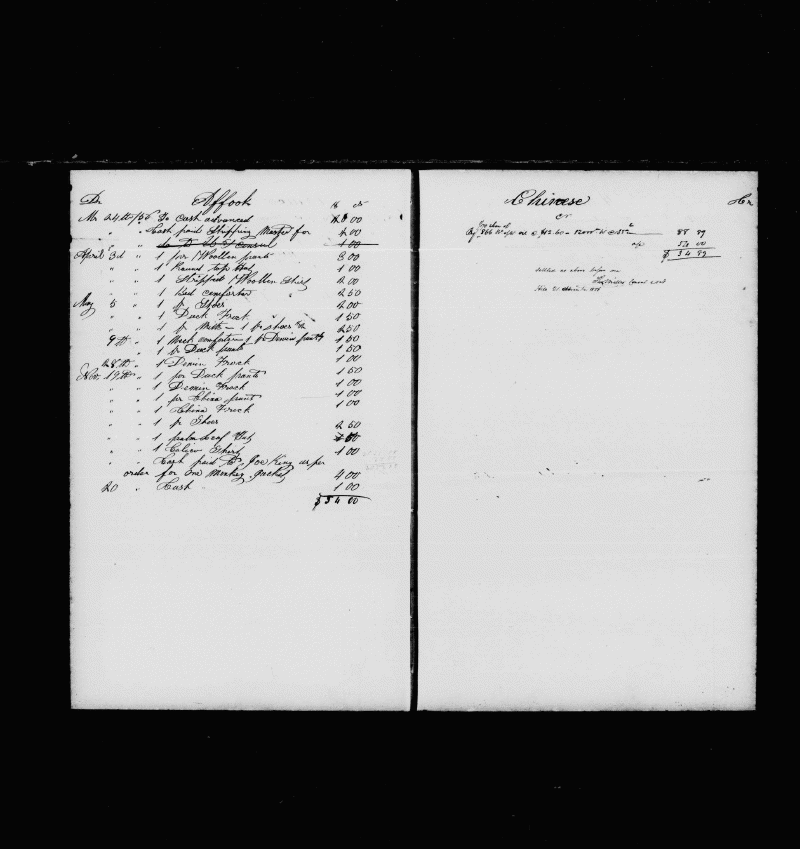 Dr Affook $ cts
Mr 24th/56 To Cash advanced 00
" " Cash paid Shipping Master for 4 00
" " do Do Consul 1 00
April 3d " 1 par Woollen pants 3 00
" " 1 Round top Hat 1 00
" " 1 Stripped Woollen Shirt 2 00
" " 1 Bed comforter 2 50
May 5 " 1 pr Shoes 2 00
" " 1 Duck Frock 1 50
" " 1 pr Mitts - 1 pr shoes 2 50
9th " 1 Neck comforter 1 pr Denim pants 1 50
" " 1 pr Duck pants 1 50
28th " 1 Denim Frock 1 00
Nov. 19th " 1 par Duck pants 1 50
" " 1 Denim Frock 1 00
" " 1 par China pant 1 00
" " 1 China Frock 1 00
" " 1 pr Shoes 2 50
" " 1 palm leaf Hat 50
" " 1 Calico Shirt 1 00
" " Cash paid to Joe King as per
order for one Monkey Jacket 4 00
20 " Cash 1 00
$ 34 00
Chinese Cr
By 88 89
34 00
$ 54 89
settled as above before me